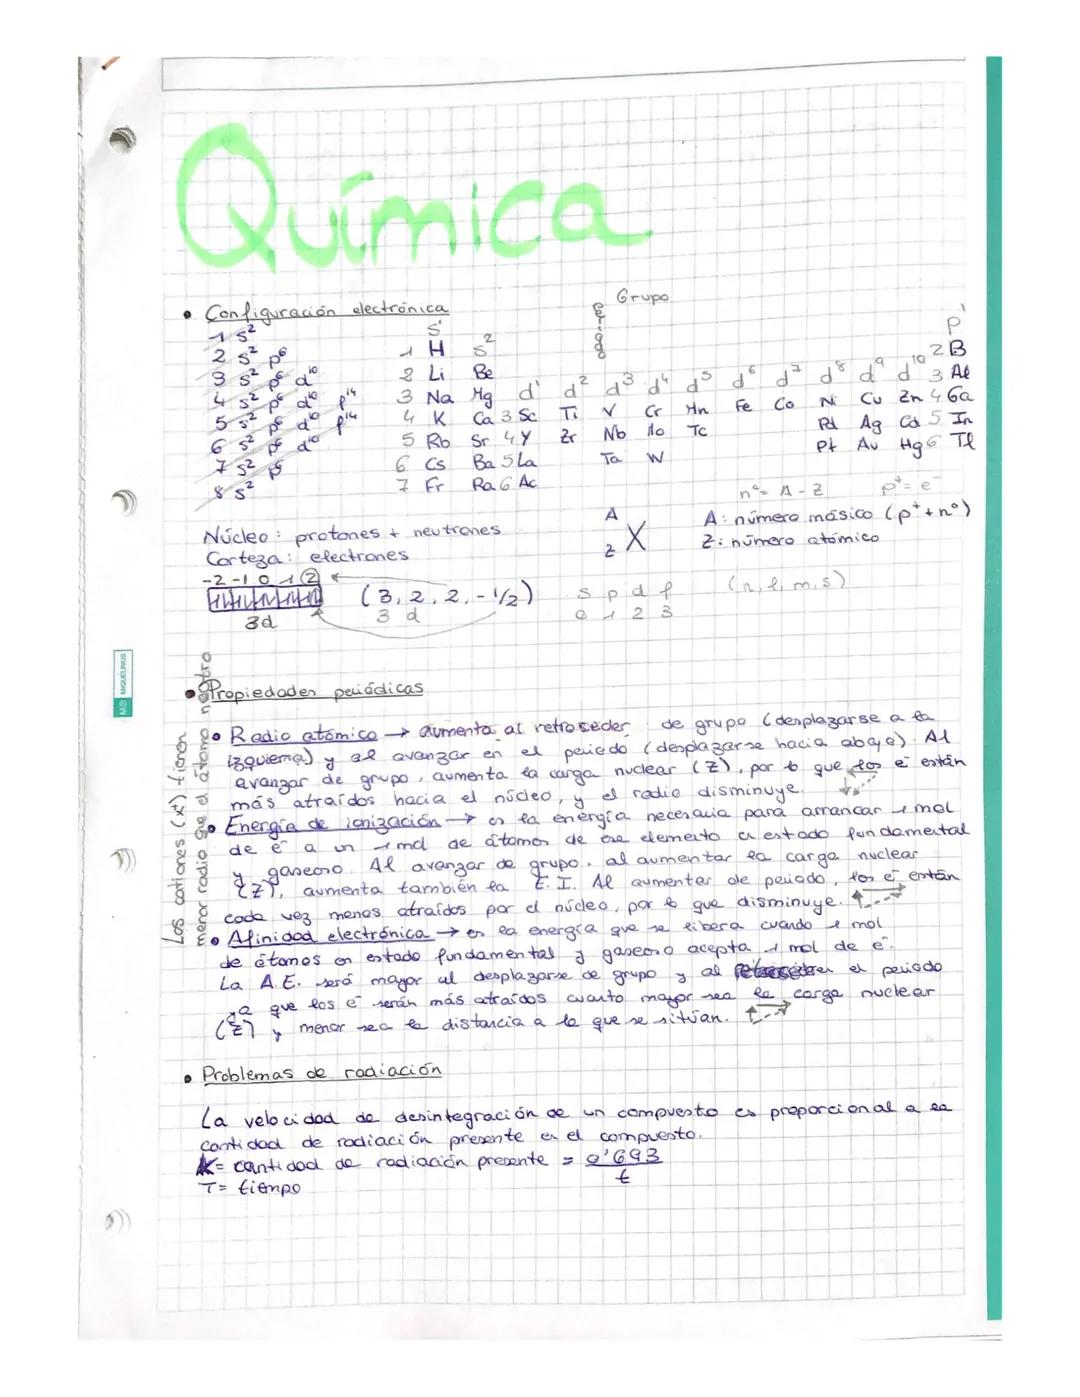 Química
Grupo
Periodo
• Configuración electrónica
1 s²
2 s² p⁶
3 s² p⁶ d¹⁰
4 s² p⁶ d¹⁰ f¹⁴
5 s² p⁶ d¹⁰ f¹⁴
6 s² p⁶ d¹⁰
7 s² p⁶
8 s²
s¹ p¹
1 H s² 2 B
2 Li Be d¹ d² d³ d⁴ d⁵ d⁶ d⁷ d⁸ d⁹ d¹⁰ 3 Al
3 Na Mg
4 K Ca 3 Sc Ti V Cr Mn Fe Co Ni Cu Zn 4 Ga
5 Rb Sr 4 Y Zr Nb Mo Tc Pd Ag Cd 5 In
6 Cs Ba 5 La Ta W Pt Au Hg 6 Tl
7 Fr Ra 6 Ac
n° = A - Z p⁺ = e⁻
Núcleo: protones + neutrones
Corteza: electrones
A
Z X
A: número másico (p⁺ + n°)
Z: número atómico
-2 -1 0 1 2
3d
(3, 2, 2, -1/2)
3 d
s p d f
0 1 2 3
(n, l, m, s)
• Propiedades periódicas
• Radio atómico → aumenta al retroseder de grupo (desplazarse a la
izquierra) y al avanzar en el periodo (desplazarse hacia abajo). Al
avanzar de grupo, aumenta la carga nuclear (Z), por lo que los e⁻ están
más atraídos hacia el núcleo, y el radio disminuye.
• Energía de ionización → es la energía necesaria para arrancar 1 mol
de e⁻ a un 1 mol de átomos de ese elemento en estado fundamental
y gaseoso. Al avanzar de grupo, al aumentar la carga nuclear
(Z), aumenta también la E.I. Al aumentar de periodo, los e⁻ están
cada vez menos atraídos por el núcleo, por lo que disminuye.
• Afinidad electrónica → es la energía que se libera cuando 1 mol
de átomos en estado fundamental y gaseoso acepta 1 mol de e⁻.
La A.E. será mayor al desplazarse de grupo y al retroceder el periodo
ya que los e⁻ serán más atraídos cuanto mayor sea la carga nuclear
(Z) y menor sea la distancia a la que se sitúan.
Los cationes (x⁺) tienen
menor radio que el átomo neutro
• Problemas de radiación
La velocidad de desintegración de un compuesto es proporcional a la
cantidad de radiación presente en el compuesto.
K = cantidad de radiación presente = 0'693
t
T = tiempo
MIQUELRIUS